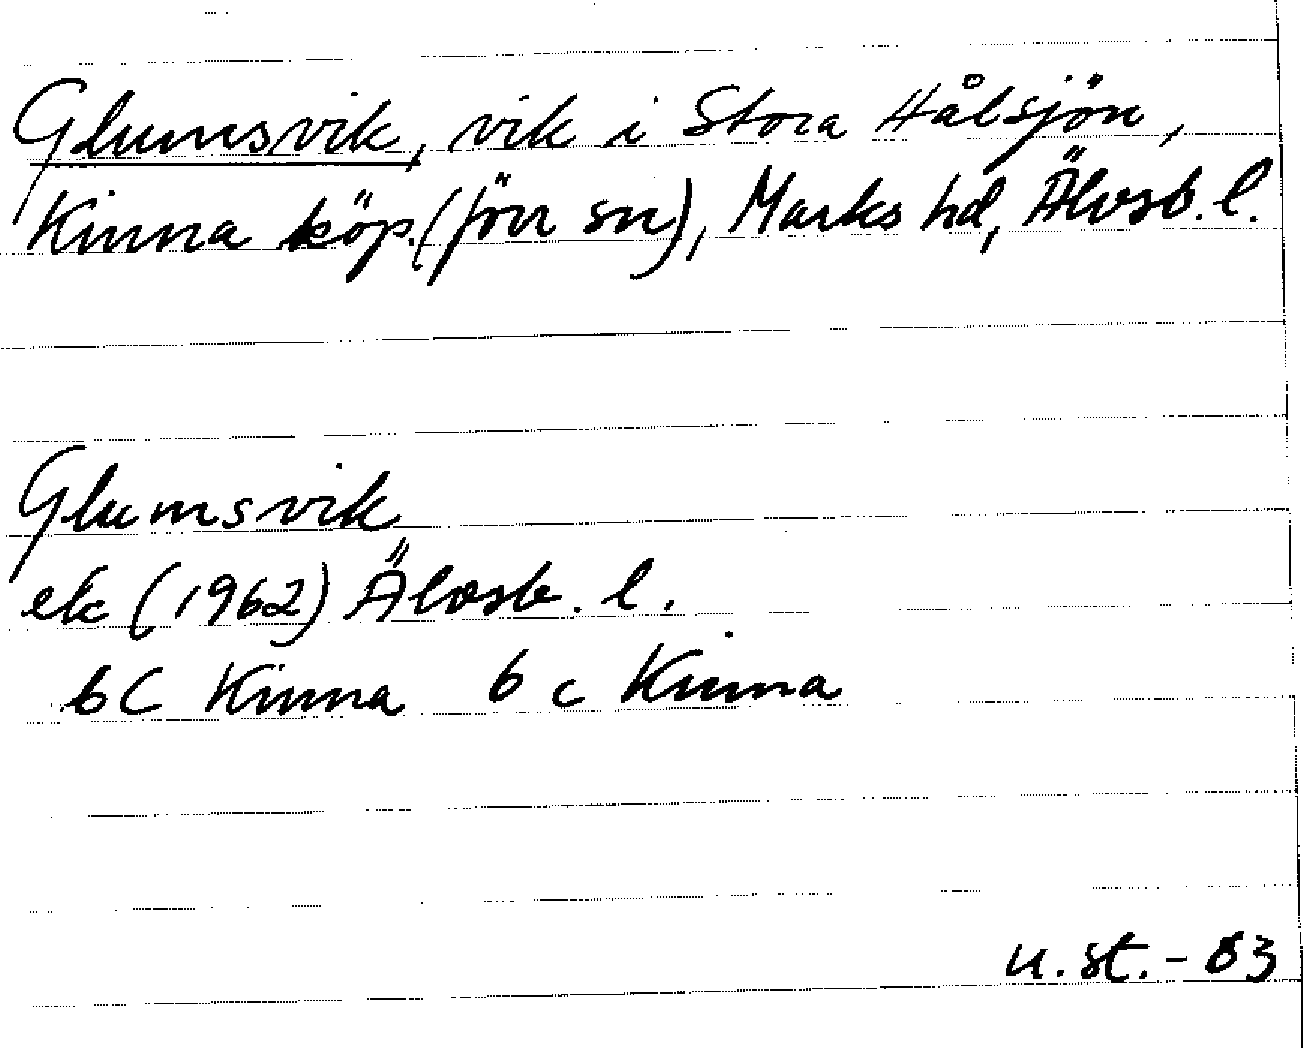 Glumsvik, vik i Stora Hålsjön,
Kinna köp. (förr sn), Marks hd, Älvsb. l.
Glumsvik
ek (1962) Älvsb. l.
6C Kinna 6 c Kinna
u. st. - 83